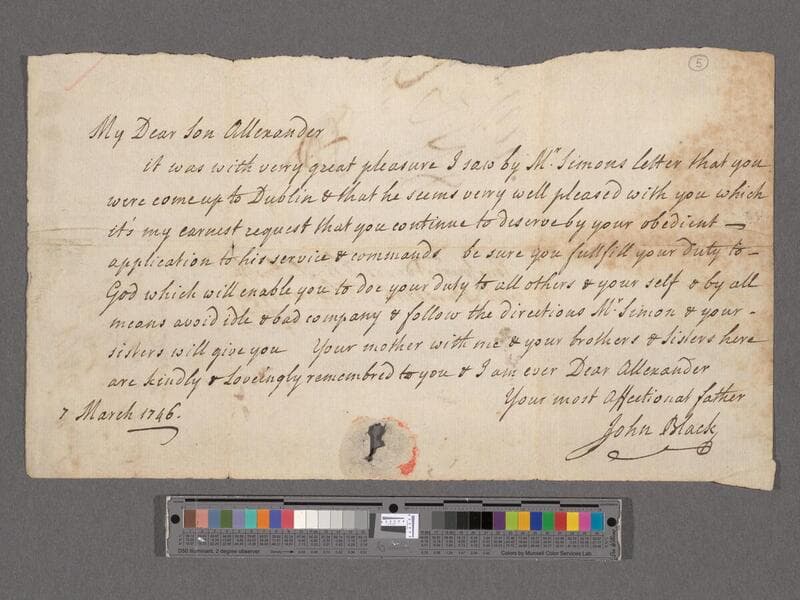 5
My Dear Son Allexander
it was with very great pleasure I saw by Mr Simons letter that you
were come up to Dublin & that he seems very well pleased with you which
it's my earnest request that you continue to deserve by your obedient —
application to his service & commands be sure you fullfill your Duty to —
God which will enable you to doe your duty to all others & your self & by all
means avoid idle & bad company & follow the directions Mr Simon & your -
sisters will give you Your mother with me & your brothers & sisters here
are kindly & Loveingly remembred to you & I am ever Dear Allexander
Your most affectionat father
7 March 1746.
John Black
D50 Illuminant, 2 degree observer
Colors by Munsell Color Services Lab